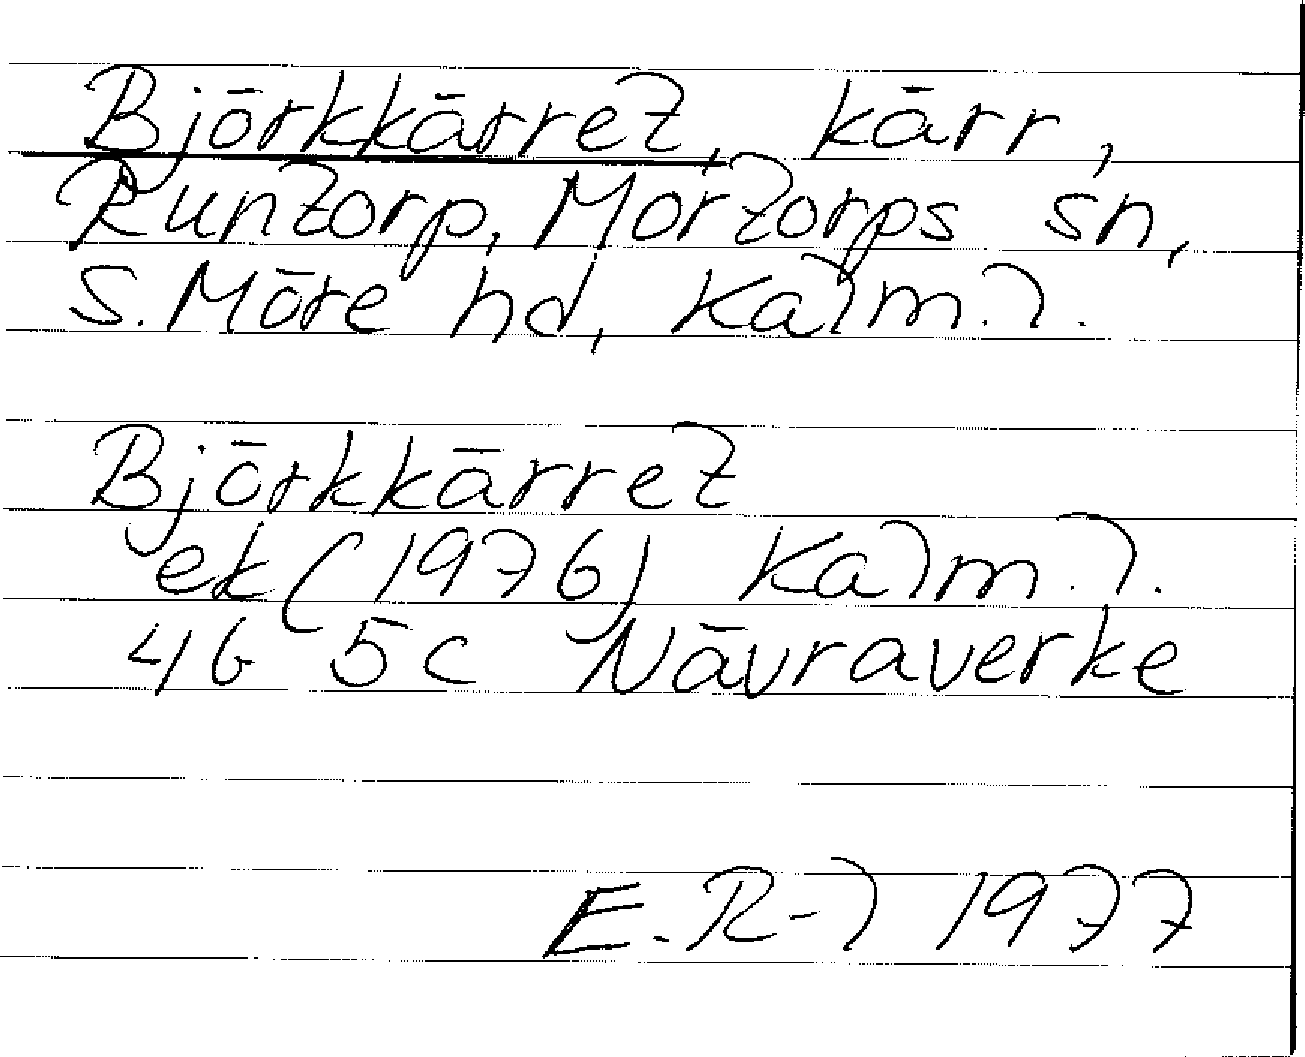 Björkkärret, kärr,
Runtorp, Mortorps sn,
S. Möre hd, Kalm. l.
Björkkärret
ek (1976) Kalm. l.
4G 5c Nävraverke
E. R-l 1977